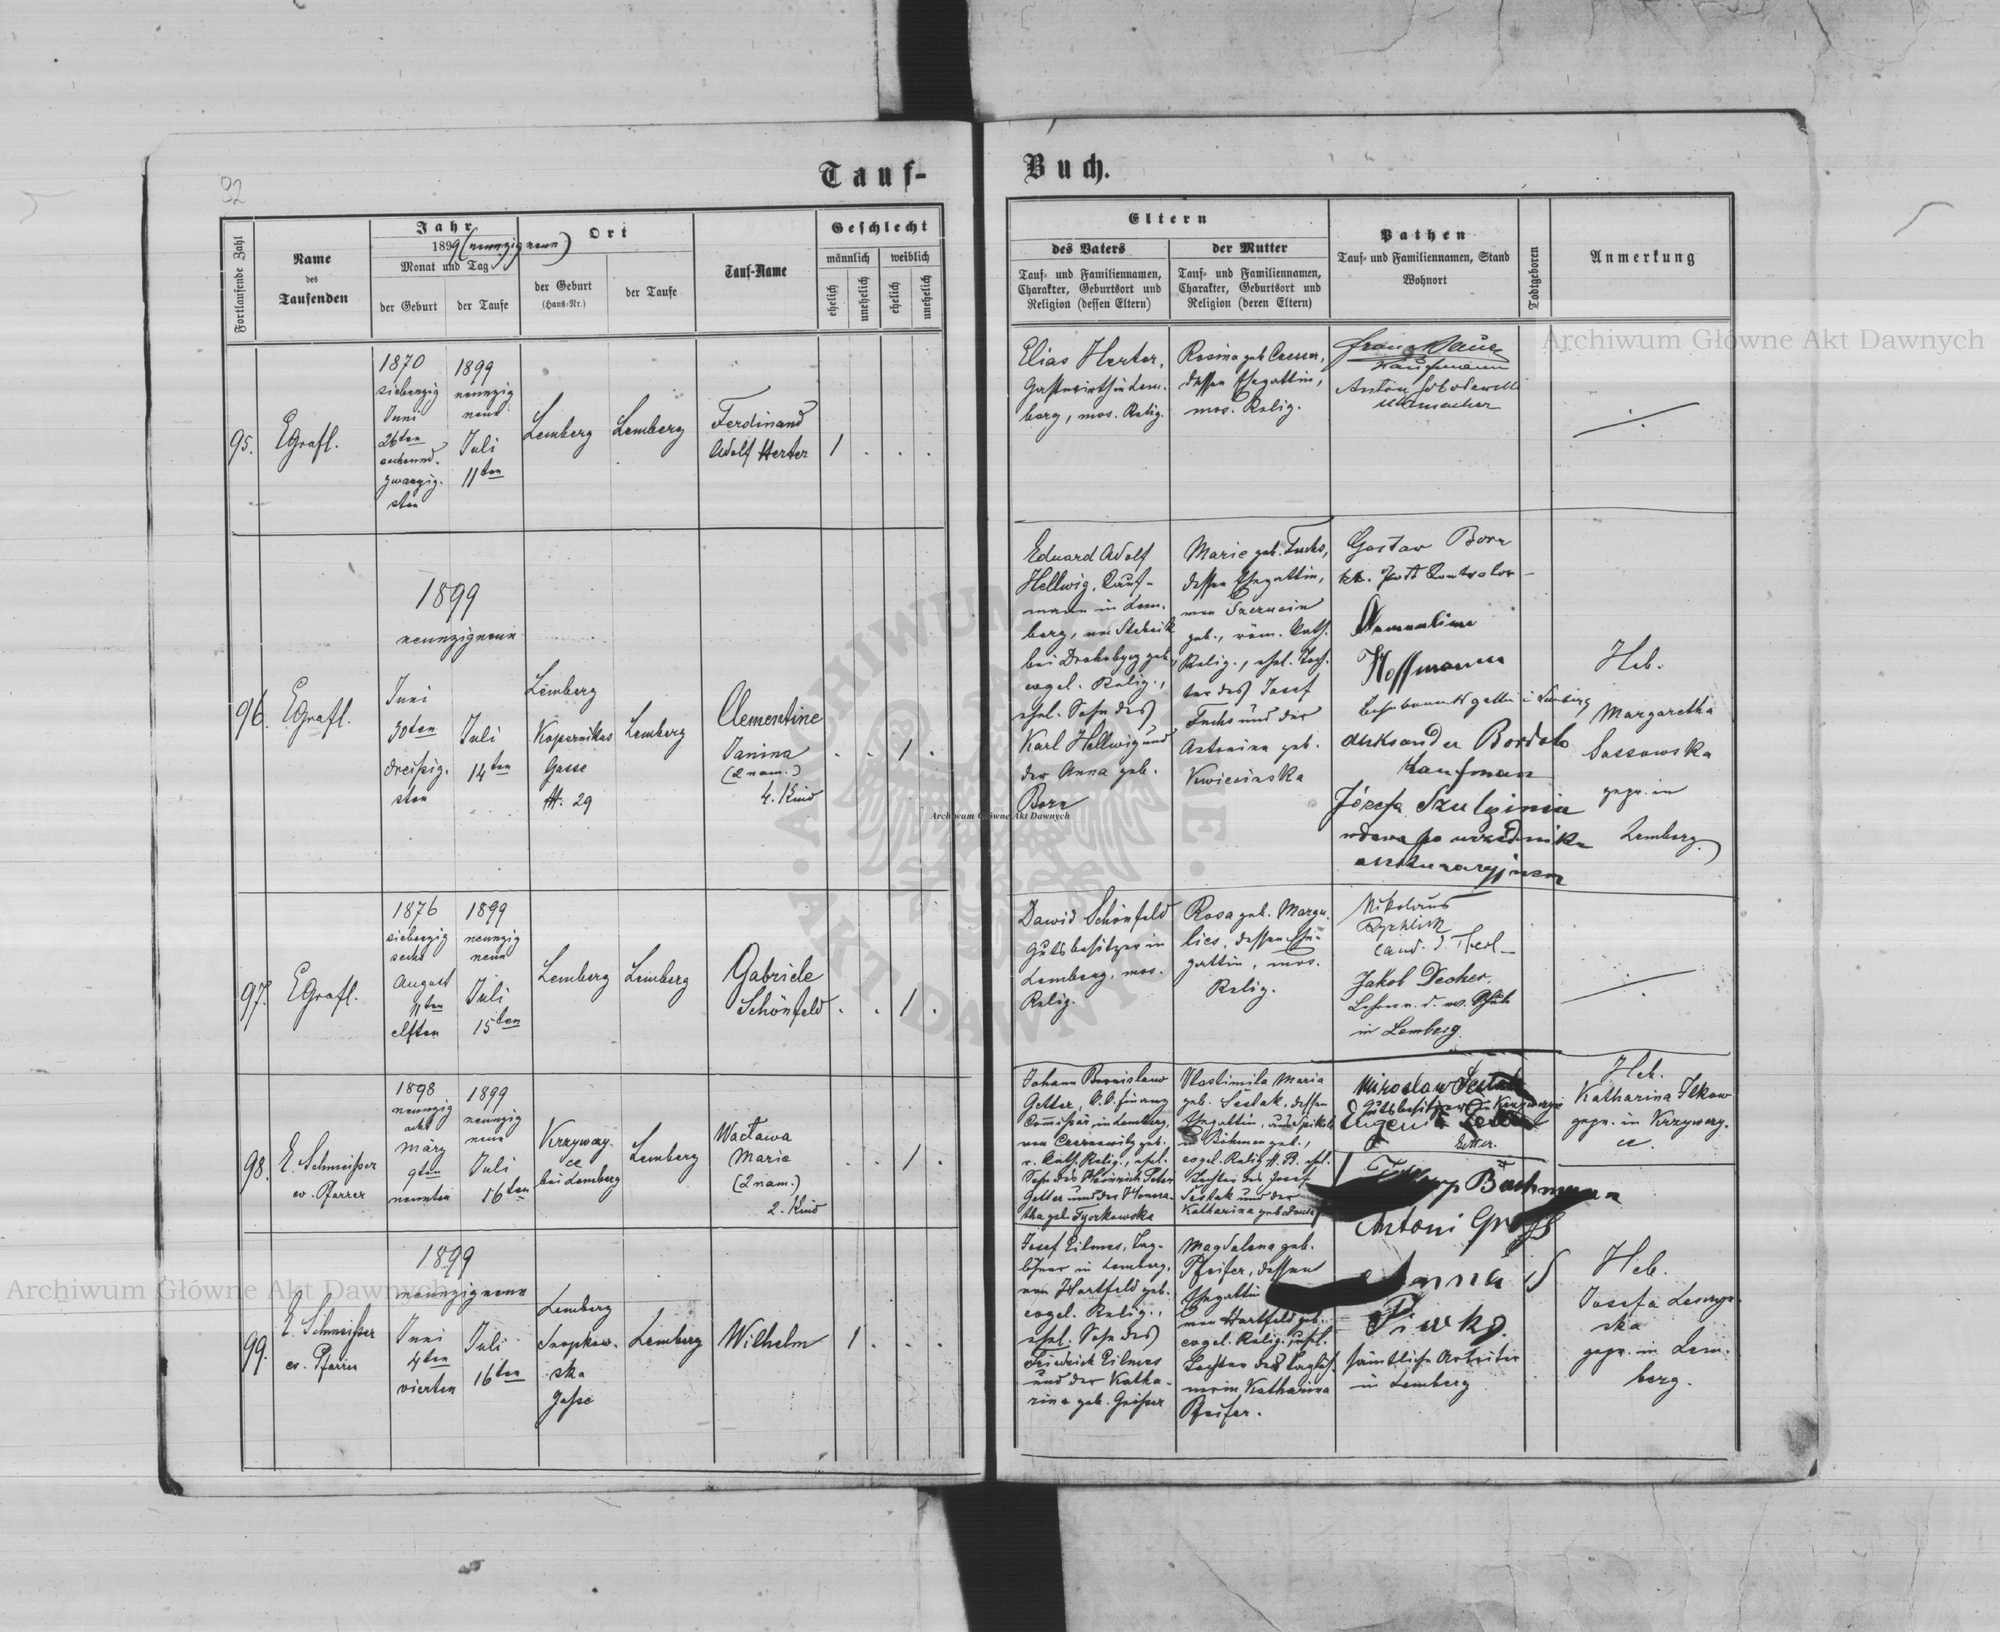 92
Tauf-
Buch.
Fortlaufende Zahl
Name
des
Taufenden
Jahr
1899 (neunzigneun)
Monat und Tag
der Geburt
der Taufe
Ort
der Geburt
(Haus-Nr.)
der Taufe
Tauf-Name
Geschlecht
männlich
weiblich
ehelich
unehelich
ehelich
unehelich
Eltern
des Vaters
Tauf- und Familiennamen,
Charakter, Geburtsort und
Religion (dessen Eltern)
der Mutter
Tauf- und Familiennamen,
Charakter, Geburtsort und
Religion (deren Eltern)
Pathen
Tauf- und Familiennamen, Stand
Wohnort
Todtgeboren
Anmerkung
95.
EGrafl.
1870
siebenzig
Juni
26ten
sechsund-
zwanzig-
sten
1899
neunzig
neun
Juli
11ten
Lemberg
Lemberg
Ferdinand
Adolf Herter
1 . . .
Elias Herter,
Gastwirth in Lem-
berg, mos. Relig.
Rosina geb.
dessen Ehegattin,
mos. Relig.
Franz Bauer
Kaufmann
Anton
96.
EGrafl.
1899
neunzigneun
Juni
30ten
dreißig-
sten
Juli
14ten
Lemberg
Kopernikus
Gasse
N. 29
Lemberg
Clementine
Janina
(2 nam.)
4. Kind
. . 1 .
Eduard Adolf
Hellwig, Kauf-
mann in Lem-
berg, von Stebnik
bei Drohobycz geb.,
evgel. Relig.,
ehel. Sohn des
Karl Hellwig und
der Anna geb.
Born
Marie geb. Fuchs,
dessen Ehegattin,
von
geb., röm. kath.
Relig., ehel. Toch-
ter des Josef
Fuchs und der
Antonina geb.
Kwiecinska
Gustav Born
kk. Post Controlor
Hoffmann
in Lemberg
Aleksander Bordolo
Kaufman
Józefa Szulginia
wdowa po urzedniku
Heb.
Margaretha
Sassowska
gepr. in
Lemberg.
97.
EGrafl.
1876
siebenzig
sechs
August
11ten
elften
1899
neunzig
neun
Juli
15ten
Lemberg
Lemberg
Gabriele
Schönfeld
. . 1 .
Dawid Schönfeld
Gutsbesitzer in
Lemberg, mos.
Relig.
Rosa geb. Margu-
lies, dessen Ehe-
gattin, mos.
Relig.
Nikolaus
Rychlik
cand. d. Theol.
Jakob Decker,
Lehrer a. d. ev. Schule
in Lemberg.
98.
E. Schmeißer
ev. Pfarrer
1898
neunzig
acht
März
9ten
neunten
1899
neunzig
neun
Juli
16ten
Krzywczy-
ce
bei Lemberg
Lemberg
Wacława
Marie
(2 nam.)
2. Kind
. . 1 .
Johann Bronislaus
Getter, k.k. Finanz
Commissär in Lemberg,
von Czernowitz geb.
r. kath. Relig., ehel.
Sohn des Heinrich Peter
Getter und der Honora-
tha geb. Tyorkowska
Vlastimila Maria
geb. Sestak, dessen
Ehegattin,
in Böhmen geb.,
evgel. Relig. H. B. ehel.
Tochter des Josef
Sestak und der
Katharina geb.
Miroslaw Sestak
Gutsbesitzer in
Eugenia
Getter.
Heb.
Katharina Ilkow
gepr. in Krzywczy-
ce
99.
E. Schmeißer
ev. Pfarrer
1899
neunzigneun
Juni
4ten
vierten
Juli
16ten
Lemberg
Snopkow-
ska
Gasse
Lemberg
Wilhelm
1 . . .
Josef Eilmes, Tag-
löhner in Lemberg,
von Hartfeld geb.
evgel. Relig.,
ehel. Sohn des
Friedrich Eilmes
und der Katha-
rina geb.
Magdalena geb.
Pfeifer, dessen
Ehegattin
von Hartfeld geb.
evgel. Relig. unehel.
Tochter der Taglöh-
nerin Katharina
Pfeifer.
Bachmann
Antoni Gross
Anna
Piwko.
sämtliche Arbeiter
in Lemberg
Heb.
Josefa Leszczyn-
ska
gepr. in Lem-
berg.
Archiwum Główne Akt Dawnych
Archiwum Główne Akt Dawnych
Archiwum Główne Akt Dawnych
ARCHIWUM GŁÓWNE AKT DAWNYCH